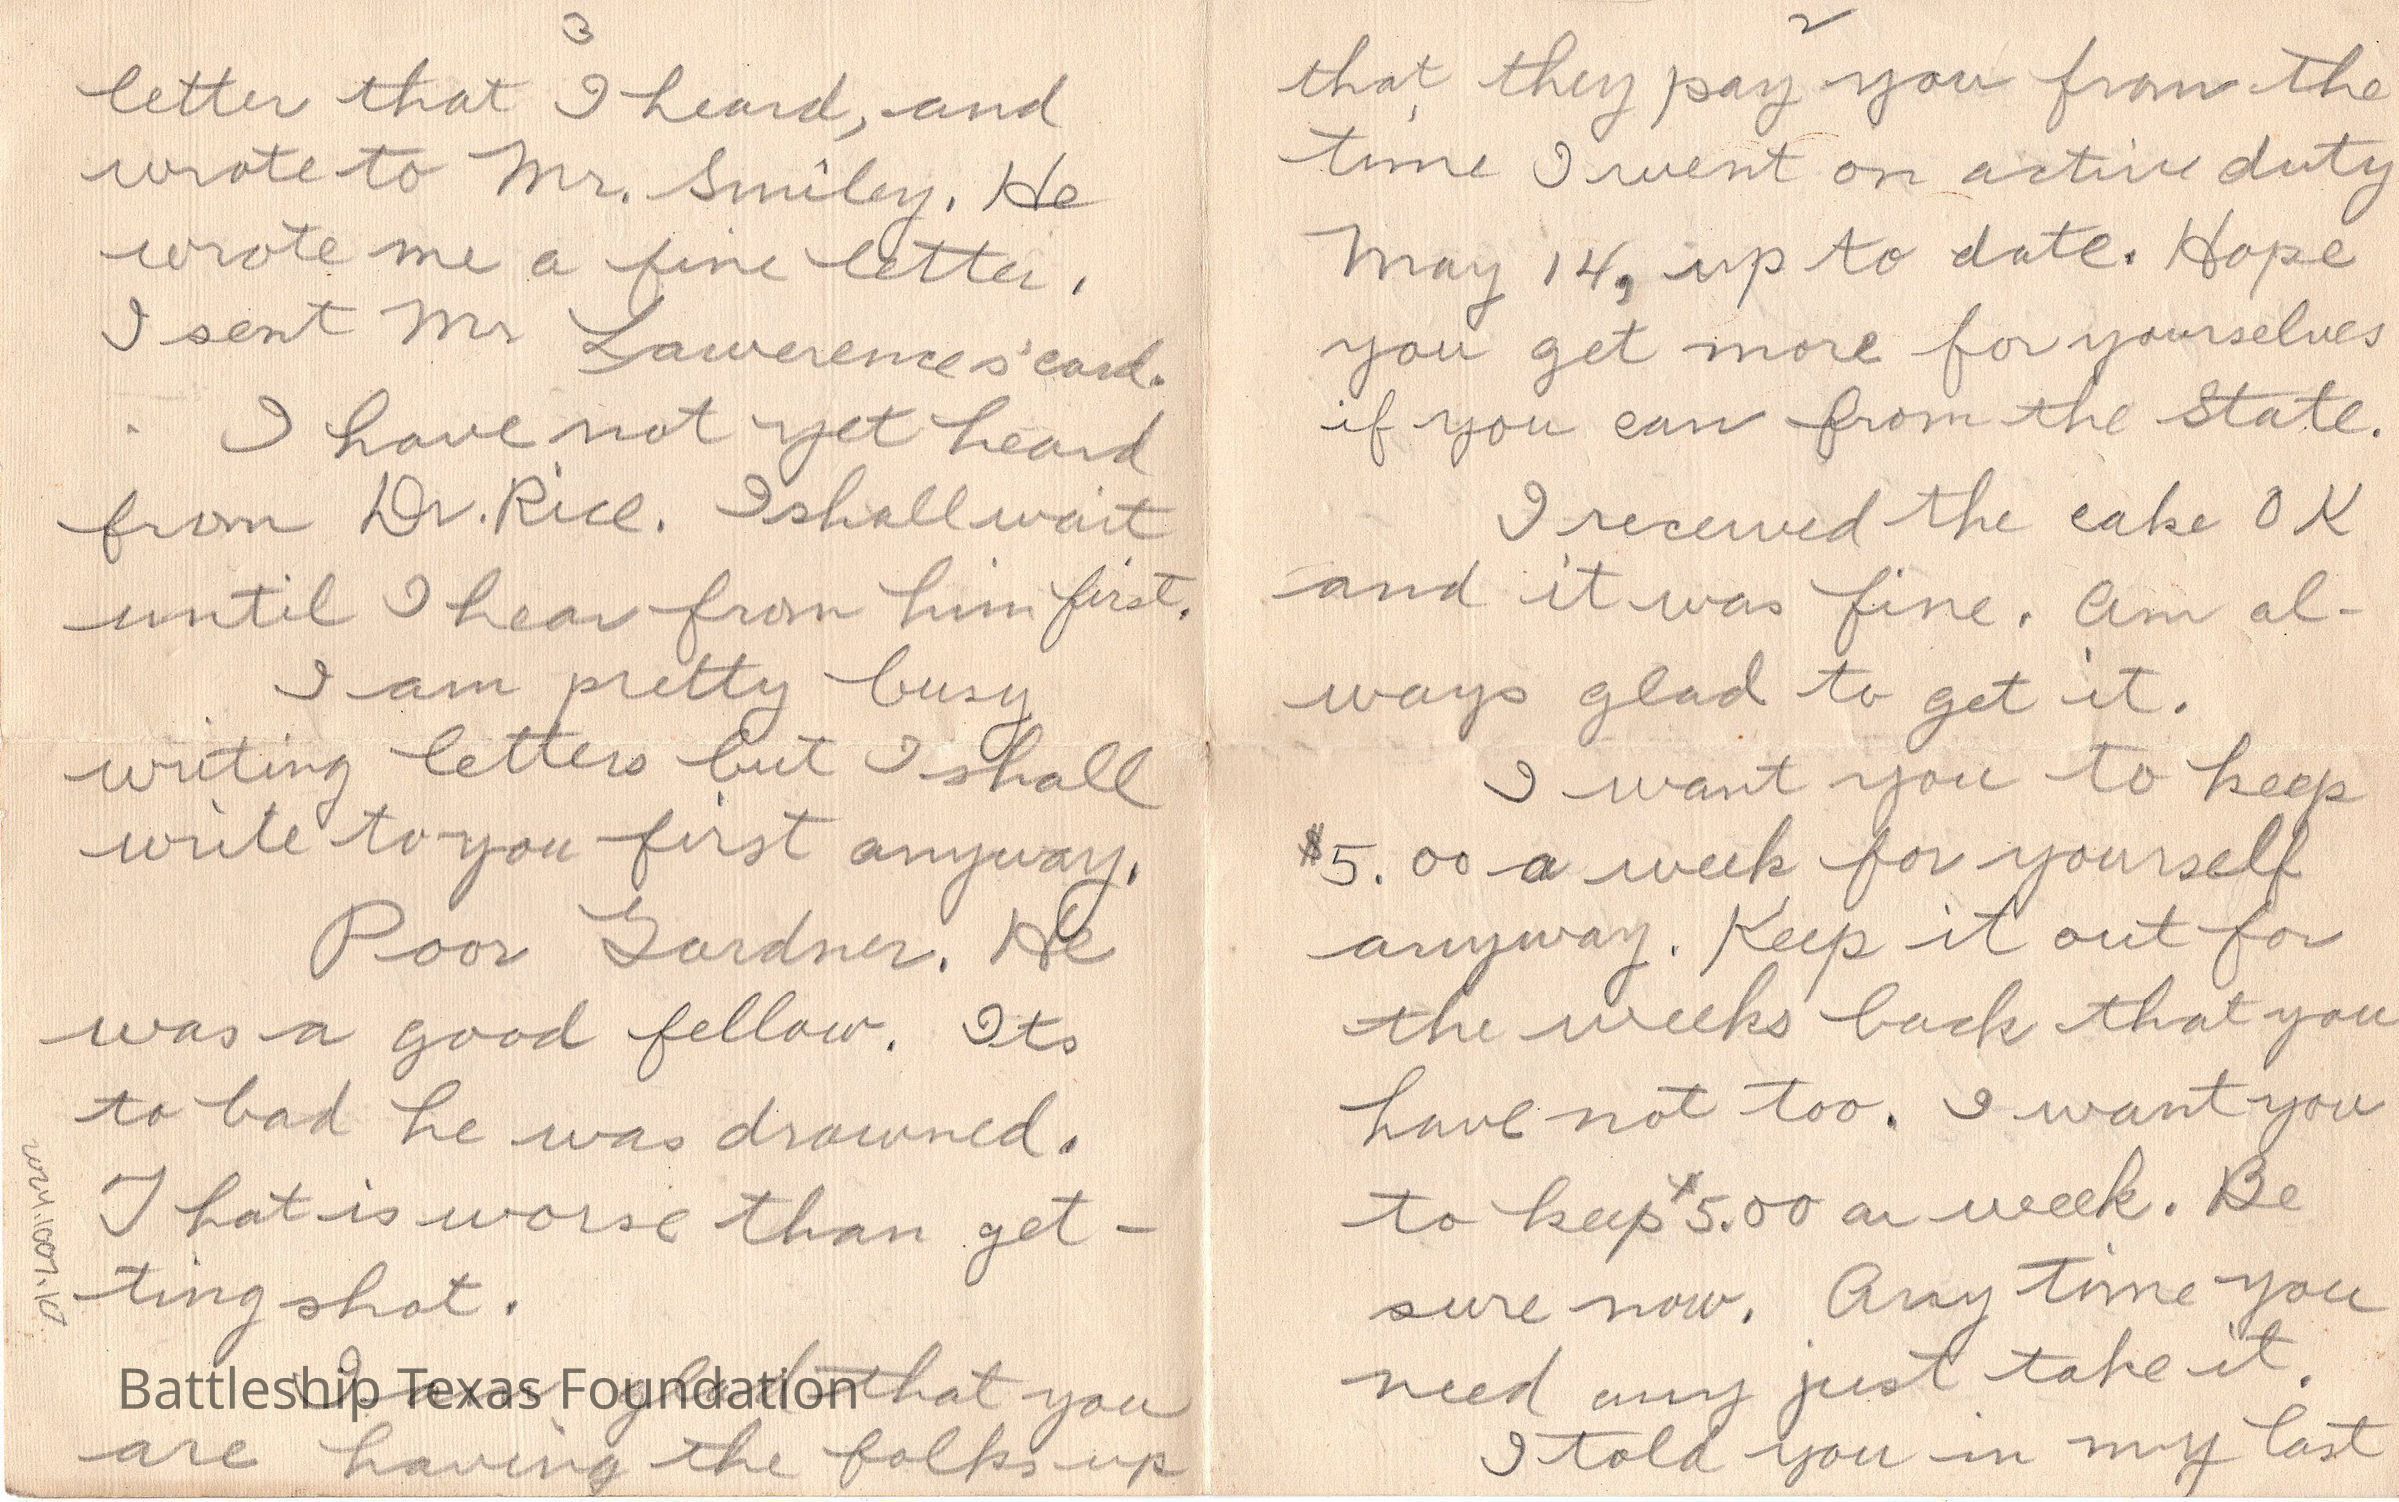 2
that they pay you from the
time I went on active duty
May 14, up to date. Hope
you get more for yourselves
if you can from the State.
I received the cake OK
and it was fine. Am al-
ways glad to get it.
I want you to keep
$5.00 a week for yourself
anyway. Keep it out for
the weeks back that you
have not too. I want you
to keep $5.00 a week. Be
sure now. Any time you
need any just take it.
I told you in my last
3
letter that I heard, and
wrote to Mr. Smiley. He
wrote me a fine letter.
I sent Mr Lawerences' card.
I have not yet heard
from Dr. Rice. I shall wait
until I hear from him first.
I am pretty busy
writing letters but I shall
write to you first anyway.
Poor Gardner. He
was a good fellow. Its
to bad he was drowned.
That is worse than get-
ting shot.
I am glad that you
are having the folks up
Battleship Texas Foundation